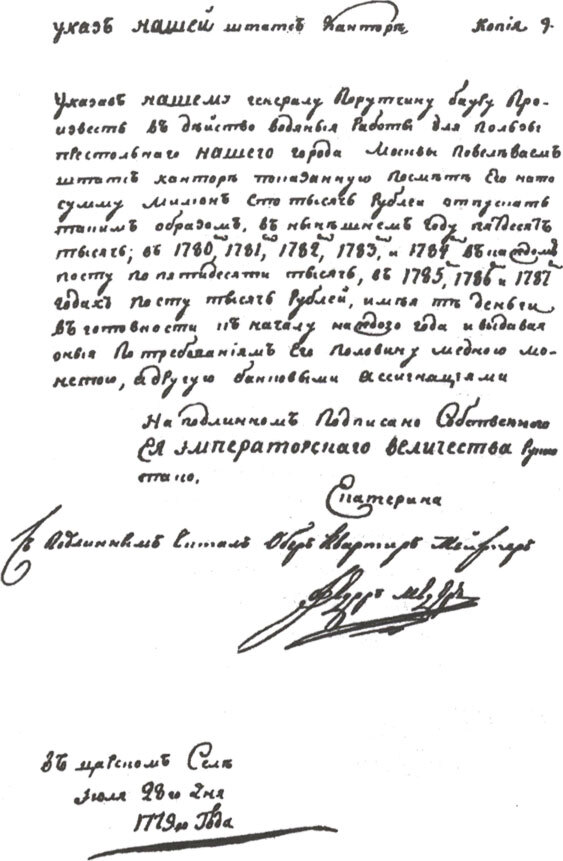 указъ НАШЕЙ штатсъ Канторѣ Копія 9.
Указавъ НАШЕМУ генералу Порутчику бауру Про-
известь въ дѣйство водяныя Работы для пользы
престольнаго НАШЕГО города Москвы повелѣваемъ
штатсъ канторѣ показанную посмѣтѣ Его нато
сумму Милионъ Сто тысячь Рублей отпускать
такимъ образомъ, въ нынѣшнемъ году пядесятъ
тысячь; въ 1780, 1781, 1782, 1783, и 1784 въкаждомъ
году по пятидесяти тысячь, въ 1785, 1786 и 1787
годахъ по сту тысячь Рублей, имѣя тѣ деньги
въ готовности къ началу каждого года и выдавая
оныя По требованіямъ Его половину медною мо-
нетою, адругую банковыми Ассигнаціями
На подлинномъ Подписано Собственного
ЕЯ ИМПЕРАТОРСКАГО ВЕЛИЧЕСТВА Рукою
тако.
Екатерина
Съ Подлиннимъ Читалъ Оберъ Квартиръ Мейстеръ
въ царскомъ Селѣ
Іюля 28го дня
1779го Года